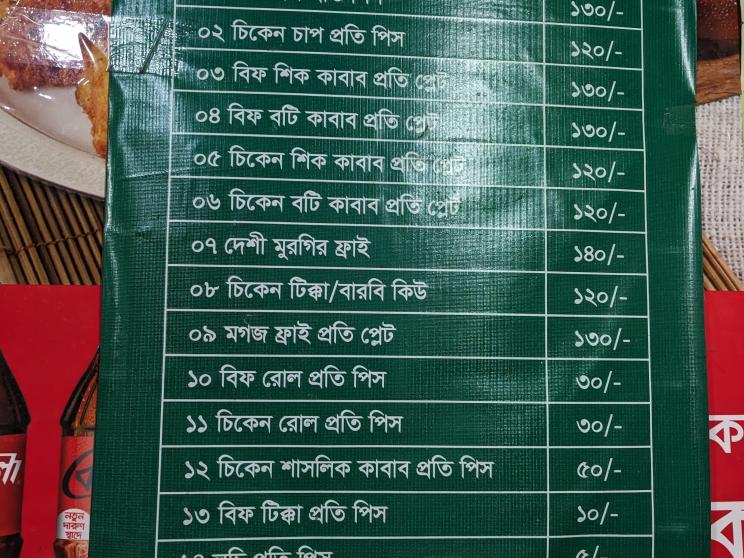 ১৩০/-
০২ চিকেন চাপ প্রতি পিস ১২০/-
০৩ বিফ শিক কাবাব প্রতি প্লেট ১৩০/-
০৪ বিফ বটি কাবাব প্রতি প্লেট ১৩০/-
০৫ চিকেন শিক কাবাব প্রতি প্লেট ১২০/-
০৬ চিকেন বটি কাবাব প্রতি প্লেট ১২০/-
০৭ দেশী মুরগির ফ্রাই ১৪০/-
০৮ চিকেন টিক্কা/বারবি কিউ ১২০/-
০৯ মগজ ফ্রাই প্রতি প্লেট ১৩০/-
১০ বিফ রোল প্রতি পিস ৩০/-
১১ চিকেন রোল প্রতি পিস ৩০/-
১২ চিকেন শাসলিক কাবাব প্রতি পিস ৫০/-
১৩ বিফ টিক্কা প্রতি পিস ১০/-
প্রতি পিস ৫/-
নতুন
দারুণ
স্বাদে